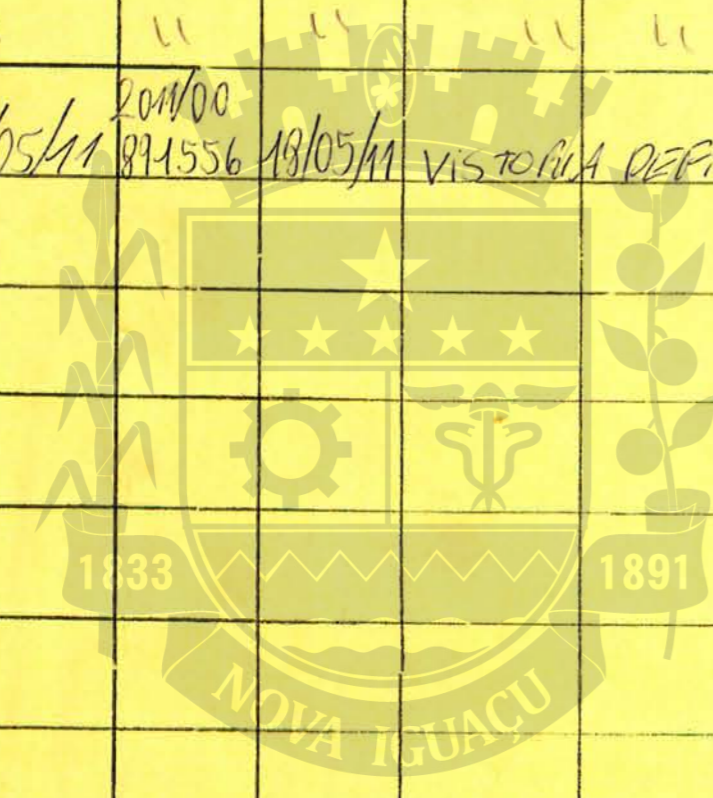 " " " "
2011/00
/05/11 891556 18/05/11 VISTORIA DEFI
1833 1891
NOVA IGUAÇU